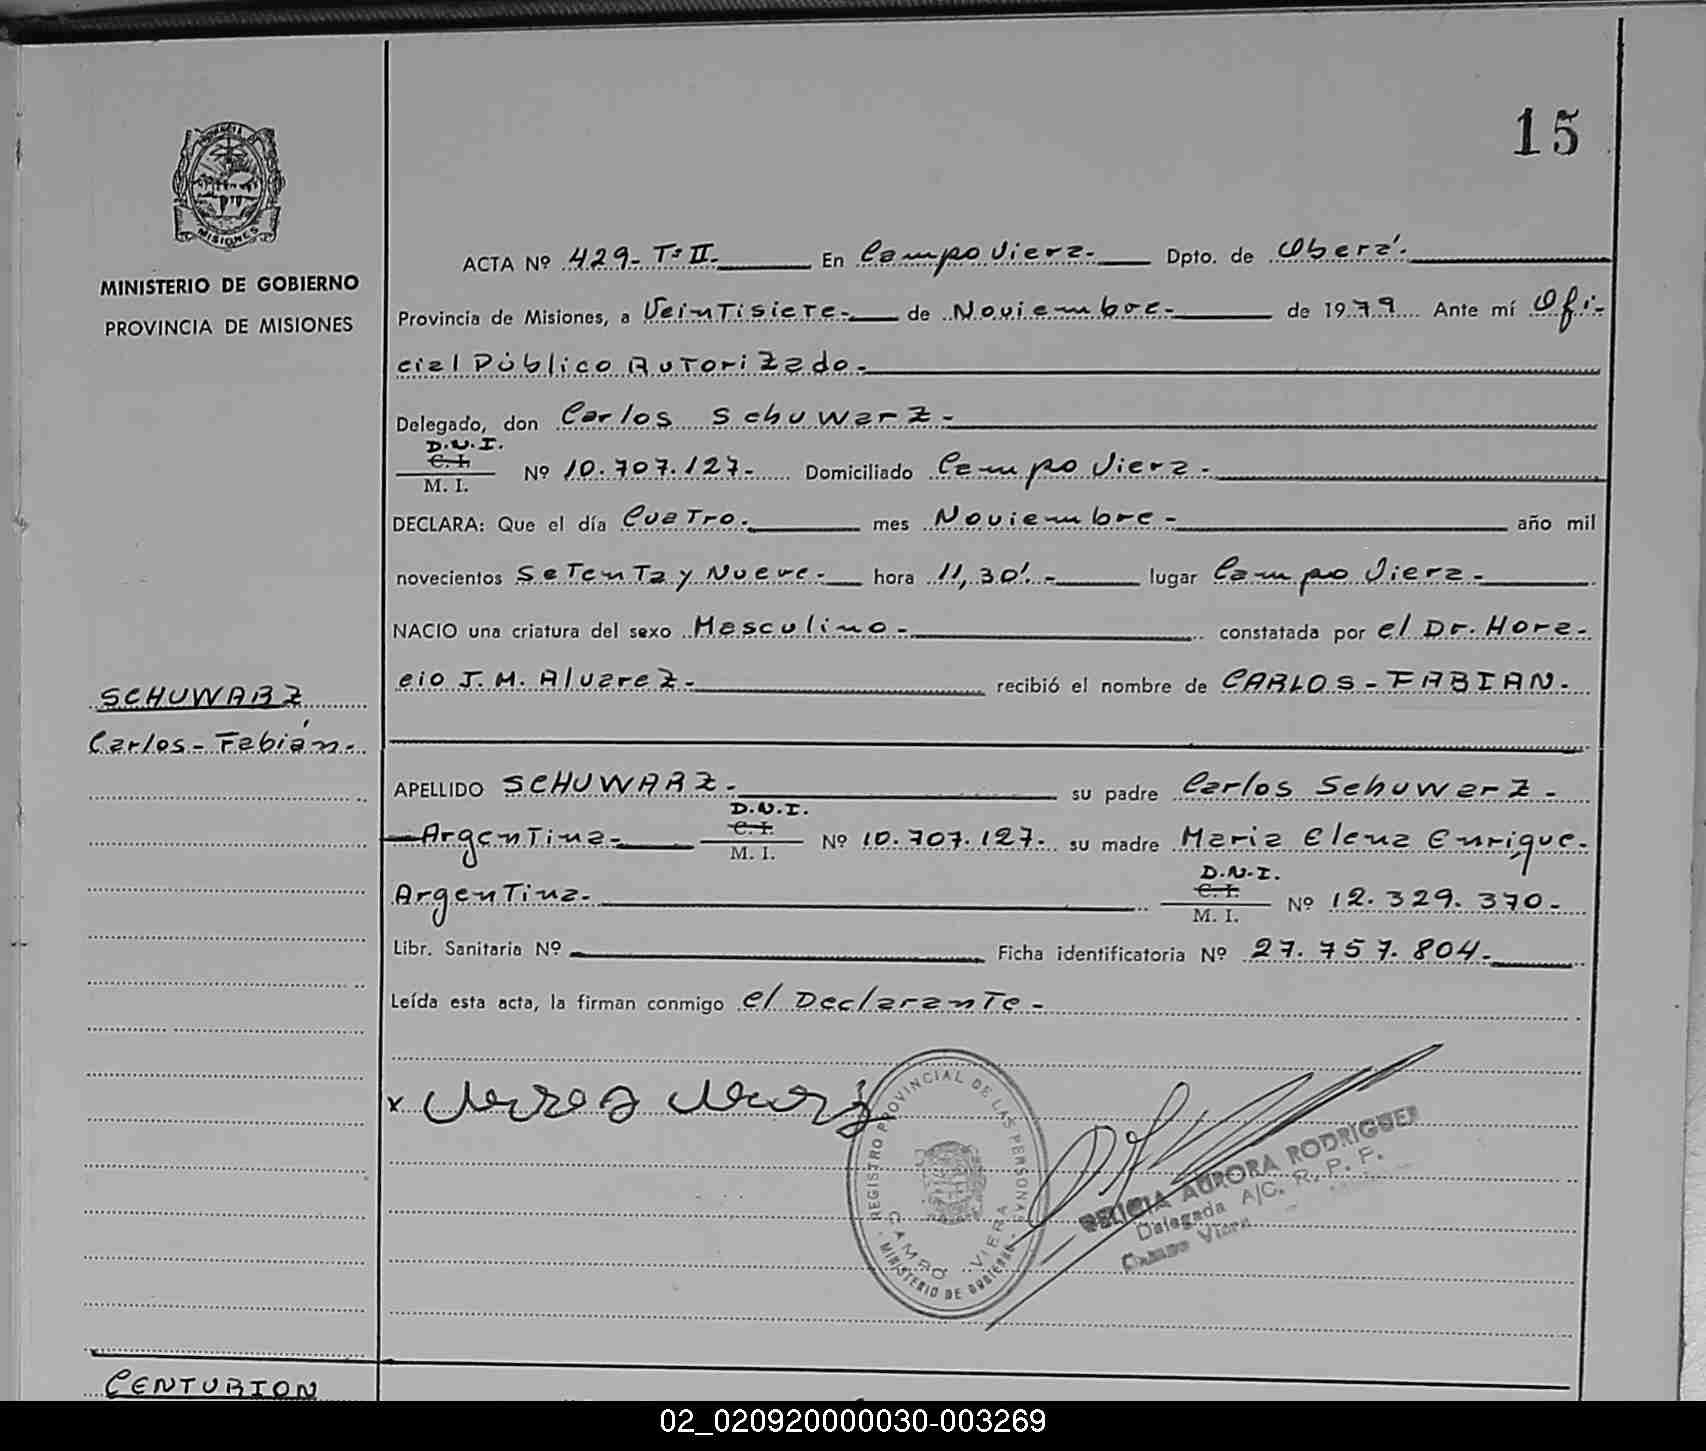 15
PROVINCIA DE
MISIONES
MINISTERIO DE GOBIERNO
PROVINCIA DE MISIONES
ACTA Nº 429- Tº II.- En Campo Viera.- Dpto. de Oberá.-
Provincia de Misiones, a Veintisiete.- de Noviembre.- de 1979 Ante mí Ofi-
cial Público Autorizado.-
Delegado, don Carlos Schuwarz.-
D.N.I.
C. I.
M. I. Nº 10.707.127.- Domiciliado Campo Viera.-
DECLARA: Que el día Cuatro.- mes Noviembre.- año mil
novecientos Setenta y Nueve.- hora 11,30'.- lugar Campo Viera.-
NACIO una criatura del sexo Masculino.- constatada por el Dr. Hora-
cio J. M. Alvarez.- recibió el nombre de CARLOS-FABIAN.-
SCHUWARZ
Carlos-Fabián.-
APELLIDO SCHUWARZ.- su padre Carlos Schuwarz.-
D.N.I.
C. I.
-Argentina.- M. I. Nº 10.707.127.- su madre Maria Elena Enrique.-
D.N.I.
C. I.
Argentina.- M. I. Nº 12.329.370.-
Libr. Sanitaria Nº Ficha identificatoria Nº 27.757.804.-
Leída esta acta, la firman conmigo el Declarante.-
x
REGISTRO PROVINCIAL DE LAS PERSONAS
CAMPO VIERA
MINISTERIO DE GOBIERNO
AURORA RODRIGUEZ
Delegada A/C. R. P. P.
Campo Viera
CENTURION
02_020920000030-003269